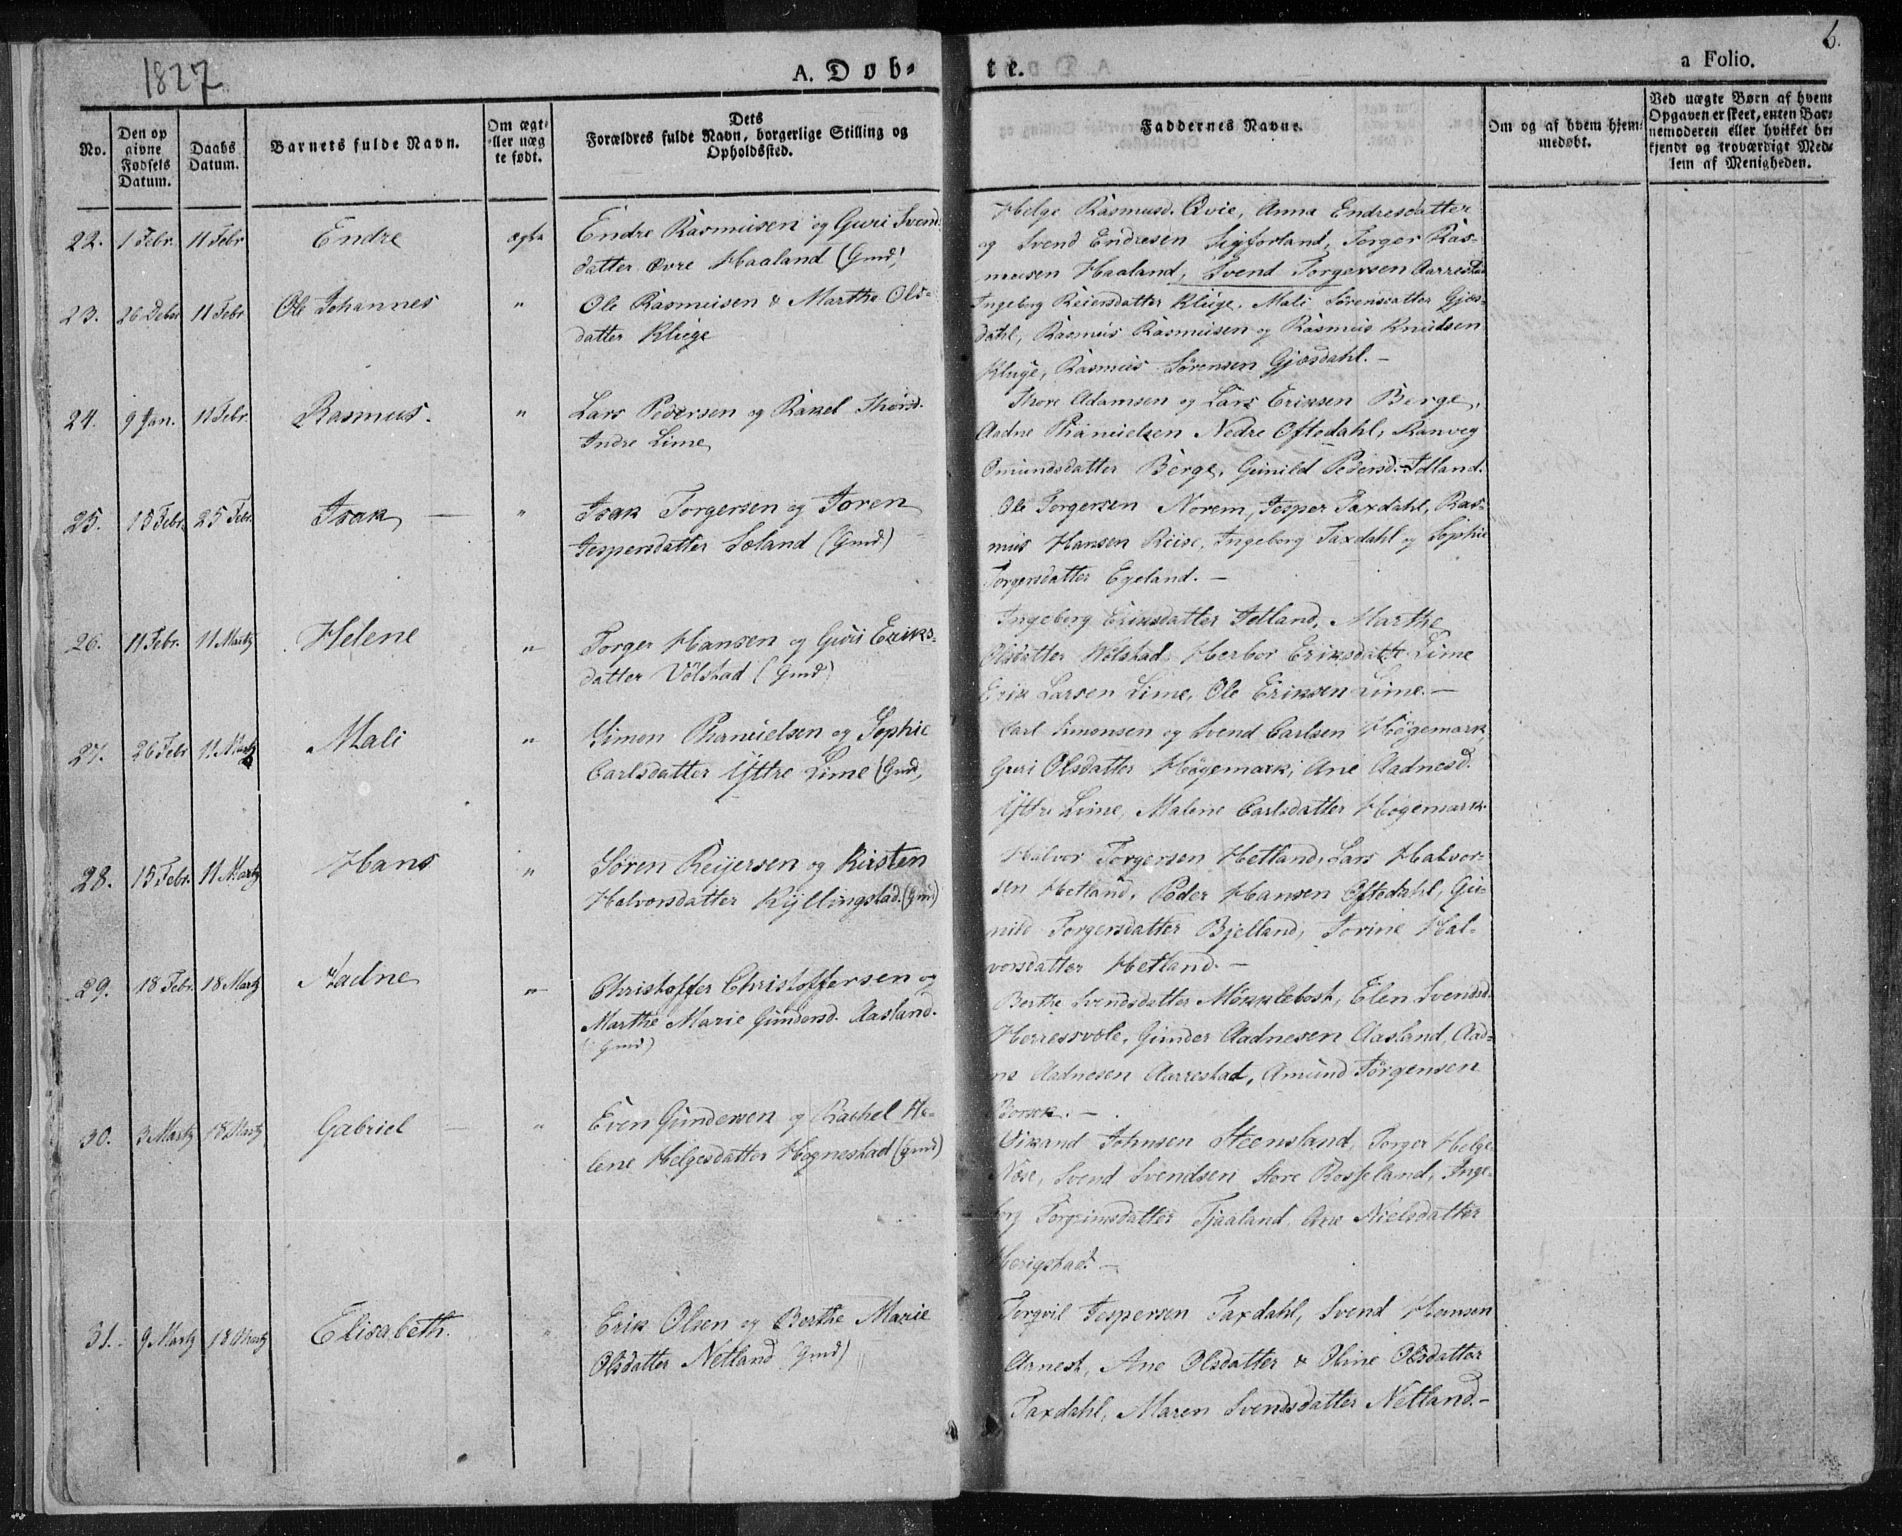 1827
A. Døb-
te.
a Folio.
6.
No.
Den op
givne
Fødsels
Datum.
Daabs
Datum.
Barnets fulde Navn.
Om ægt
eller uæg
te født.
Dets
Forældres fulde Navn, borgerlige Stilling og
Opholdssted.
Faddernes Navne.
Om og af hvem hjem-
medøbt.
Ved uægte Børn af hvem
Opgaven er skeet, enten Bar-
nemoderen eller hvilket be
kjendt og troværdigt Med-
lem af Menigheden.
22. 1 Febr. 11 Febr Endre ægte
Endre Rasmusen og Guri Svend
datter øvre Haaland (Gmd)
Helge Rasmusd. Qvie, Anna Endresdatter
og Svend Endresen Sigforland, Torger Ras-
musen Haaland, Svend Torgersen Aarrestad
23. 26 Debr 11 Febr Ole Johannes "
Ole Rasmusen & Martha Ols-
datter Kluge
Ingeborg Reiersdatter Kluge, Mali Sørensdatter Gjes-
dahl, Rasmus Rasmusen og Rasmus Knudsen
Kluge, Rasmus Sørensen Gjesdahl. -
24. 9 Jan. 11 Febr Rasmus. "
Lars Pedersen og Rakel Thord.
Indre Lime
Thore Adamsen og Lars Eriksen Berge,
Aadne Phanuelsen Nedre Oftedahl, Ranveg
Omundsdatter Berge, Gunild Pedersd. Idland.
25. 15 Febr. 25 Febr. Isak - "
Isak Torgersen og Toren
Jespersdatter Søland (Gmd)
Ole Torgersen Norem, Jesper Taxdahl, Ras-
mus Hansen Reise, Ingeborg Taxdahl og Sophie
Torgersdatter Egeland. -
26. 11 Febr. 11 Martz Helene "
Torger Hansen og Guri Eriks-
datter Vølstad (Gmd)
Ingeborg Eriksdatter Idland, Marthe
Olsdatter Wølstad, Herbor Eriksdatt Lime
Erik Larsen Lime, Ole Eriksen Lime. -
27. 26 Febr 11 Martz Mali "
Simon Phanuelsen og Sophie
Carlsdatter Ÿttre Lime (Gmd)
Carl Simonsen og Svend Carlsen Høgemark
Guri Olsdatter Høgemark, Ane Aadnesd.
Ÿttre Lime, Malene Carlsdatter Høgemark
28. 15 Febr. 11 Martz Hans "
Søren Reijersen og Kirsten
Halvorsdatter Kÿllingstad. (Gmd)
Halvor Torgersen Hetland, Lars Halvor-
sen Hetland, Peder Hansen Oftedahl, Gu-
nild Torgersdatter Bjelland, Torine Hal-
vorsdatter Hetland. -
29. 18 Febr. 18 Martz Aadne "
Christoffer Christoffersen og
Marthe Marie Gundersd. Aasland.
(Gmd)
Berthe Svendsdatter Møkklebost, Elen Svendsd.
Herresvole, Gunder Aadnesen Aasland, Aad-
ne Aadnesen Aarrestad, Amund Jørgensen
Bork. -
30. 3 Martz 18 Martz Gabriel - "
Even Gundersen og Rachel He-
lene Helgesdatter Hognestad (Gmd)
Vikand Johnsen Steensland, Torger Helge
Nøse, Svend Svendsen Store Rosseland, Inge-
borg Torgrimsdatter Tjaaland, Ane Nielsdatter
Herigstad. -
31. 9 Martz 18 Martz Elisabeth. "
Erik Olsen og Berthe Marie
Olsdatter Netland (Gmd)
Torgvil Jespersen Taxdahl, Svend Hansen
Aarnest, Ane Olsdatter & Oline Olsdatter
Taxdahl, Maren Svendsdatter Netland. -